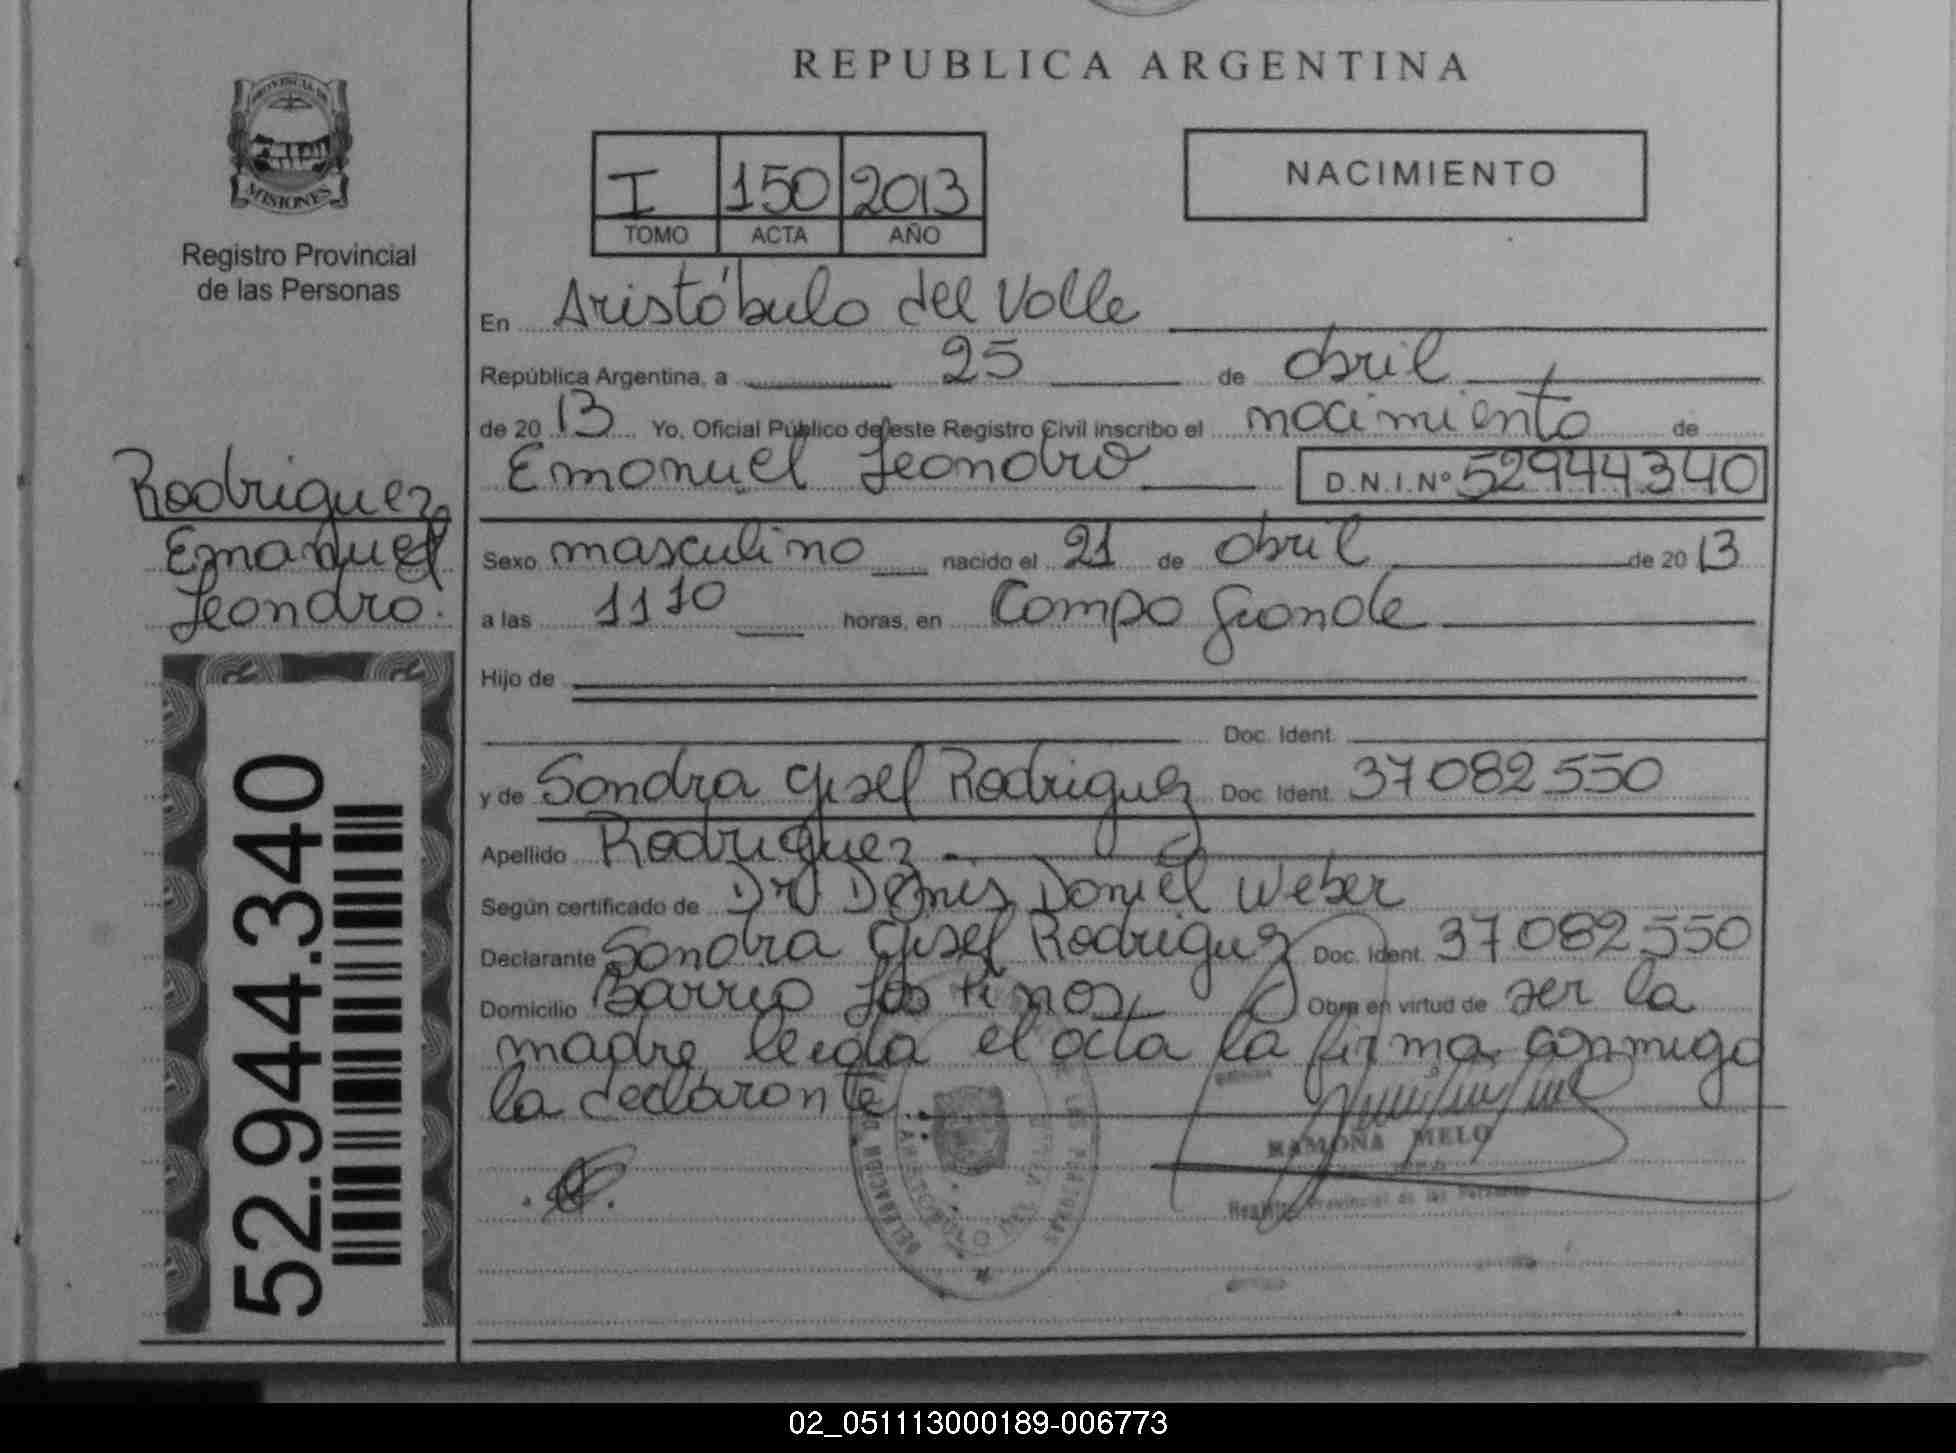 REPUBLICA ARGENTINA
PROVINCIA DE
MISIONES
Registro Provincial
de las Personas
I 150 2013
TOMO ACTA AÑO
NACIMIENTO
En Aristóbulo del Valle
República Argentina, a 25 de abril
de 2013 Yo, Oficial Público de este Registro Civil inscribo el nacimiento de
Emanuel Leandro D.N.I. Nº 52944340
Rodriguez
Emanuel
Leandro.
Sexo masculino nacido el 21 de abril de 2013
a las 1110 horas, en Campo Grande
Hijo de
Doc. Ident.
y de Sandra Gisel Rodriguez Doc. Ident. 37082550
Apellido Rodriguez
Según certificado de Dr Denis Daniel Weber
Declarante Sandra Gisel Rodriguez Doc. Ident. 37082550
Domicilio Barrio Los Pinos Obra en virtud de ser la
madre, leida el acta la firma conmigo
la declarante.
RAMONA MELO
Registro Provincial de las Personas
52.944.340
02_051113000189-006773